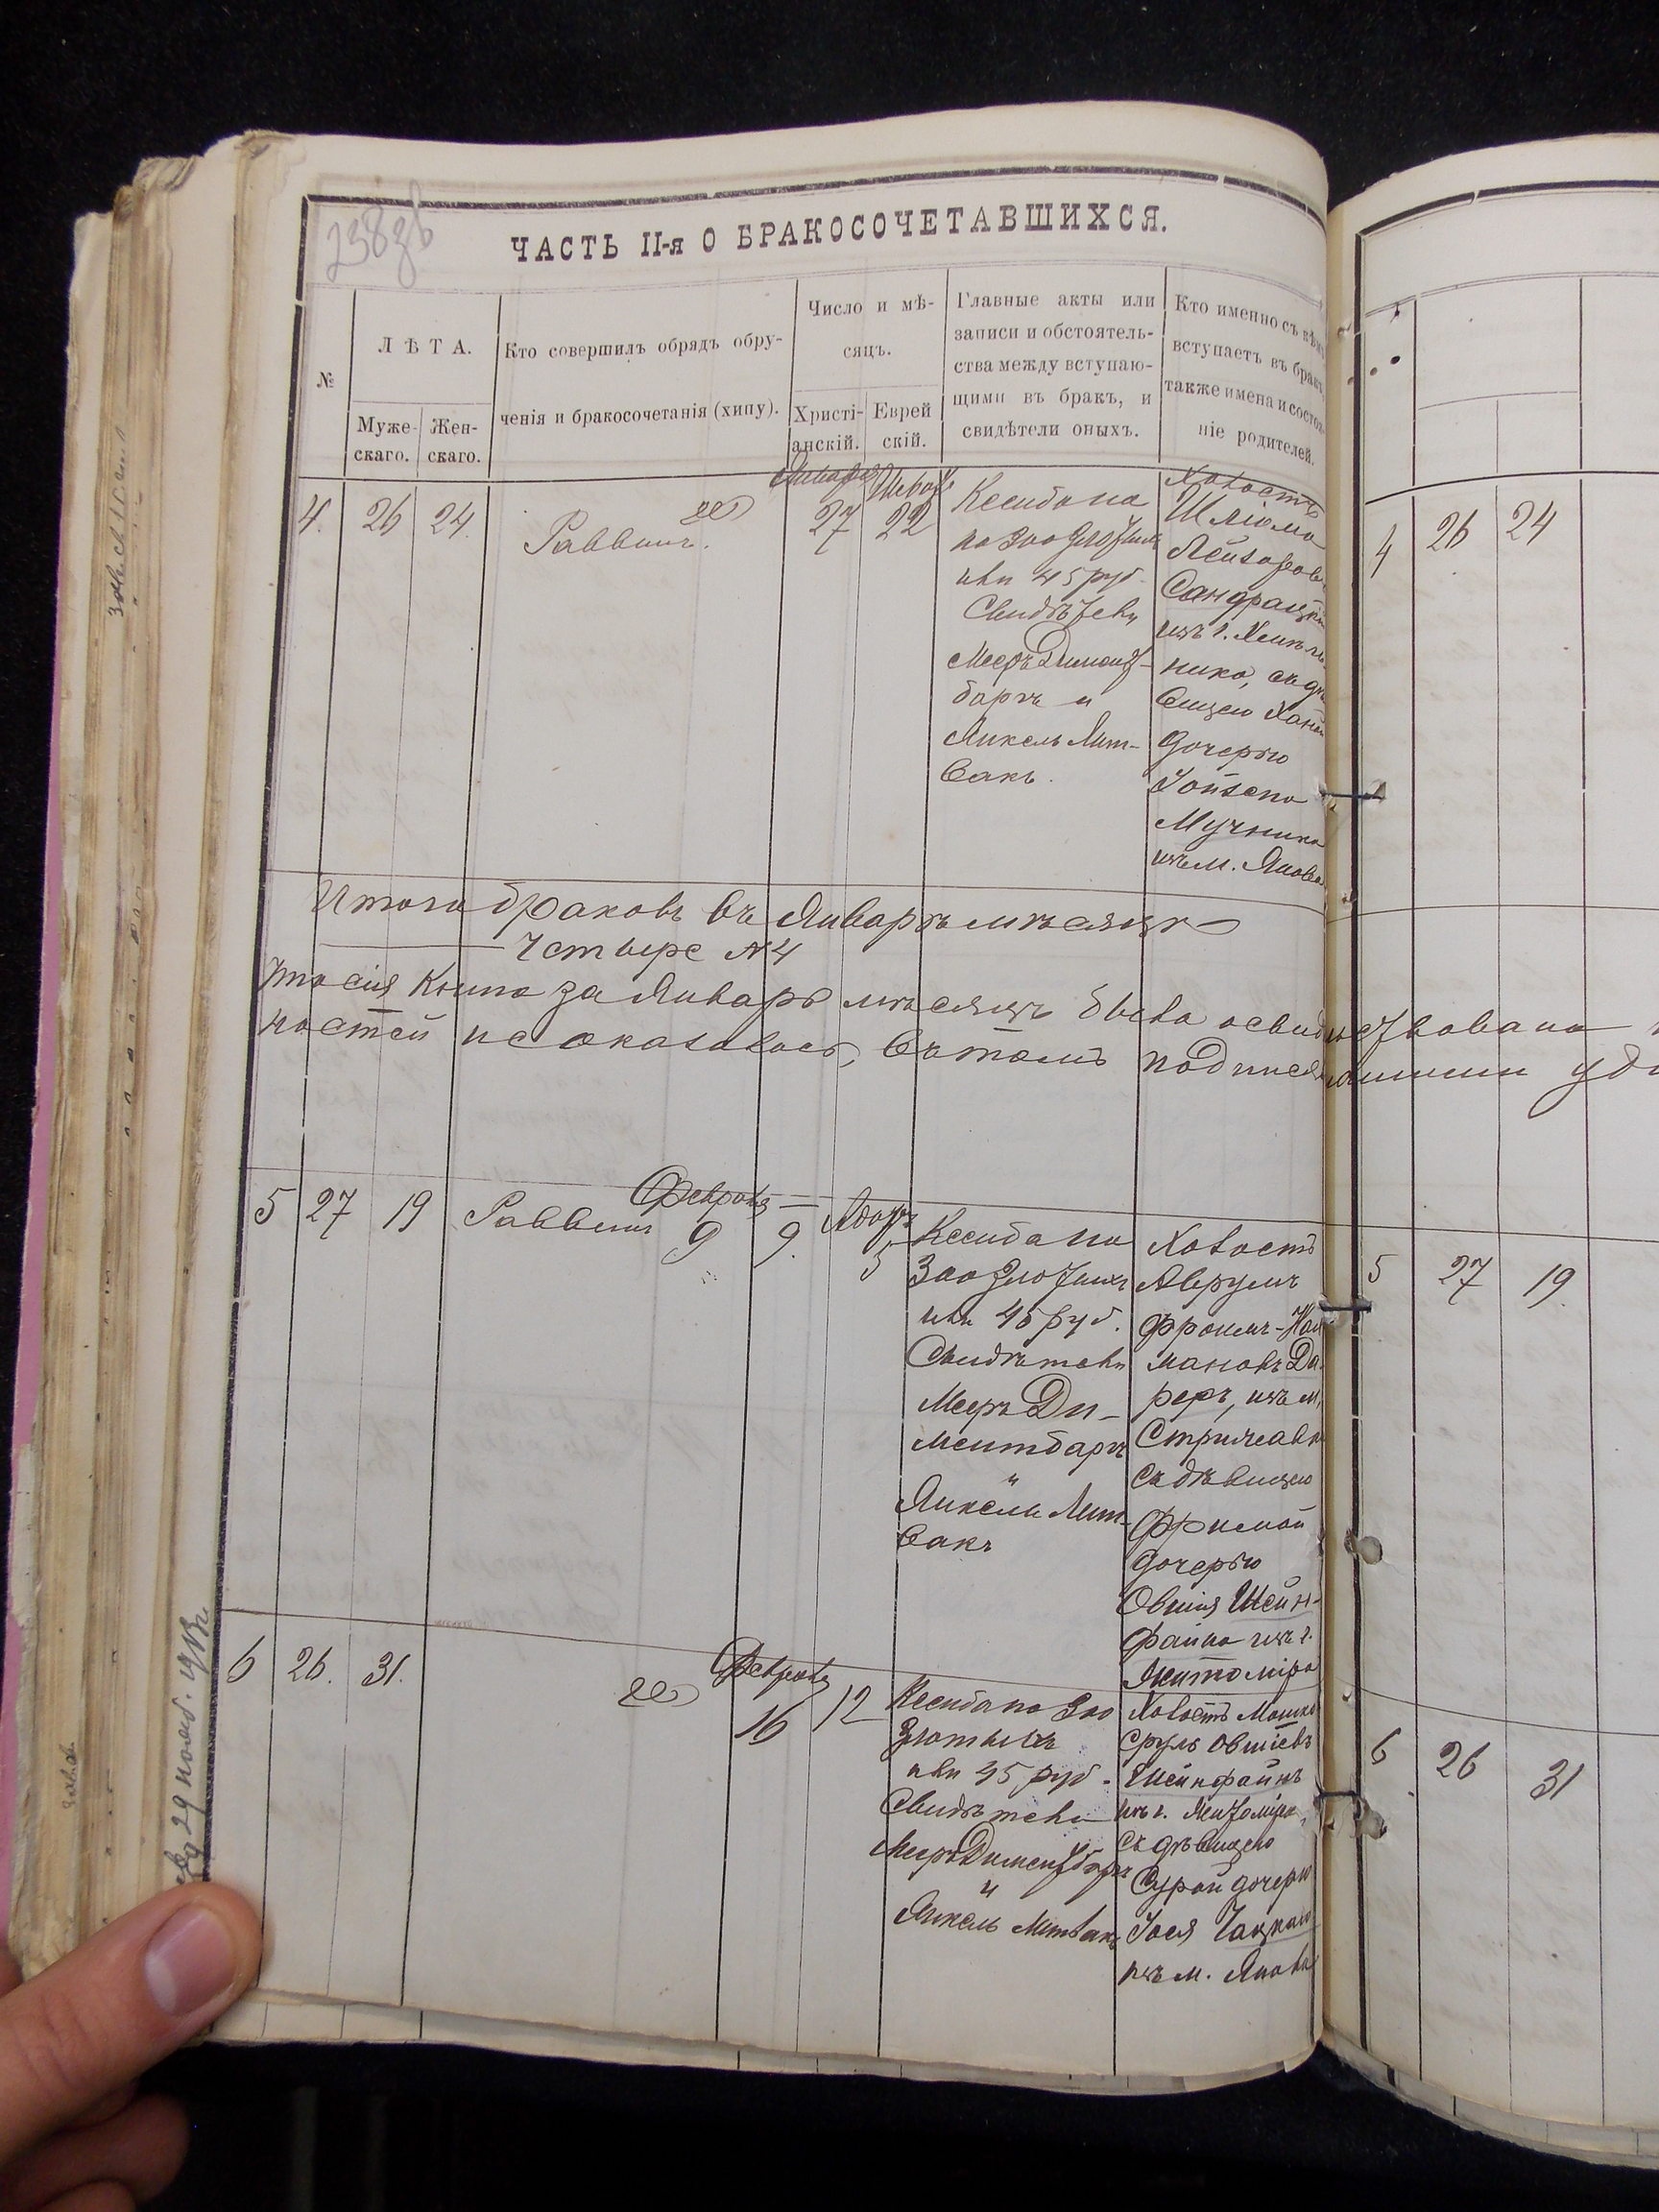 238об
ЧАСТЬ II-я О БРАКОСОЧЕТАВШИХСЯ.
№
ЛѢТА.
Муже-
скаго.
Жен-
скаго.
Кто совершилъ обрядъ обру-
ченія и бракосочетанія (хипу).
Число и мѣ-
сяцъ.
Христі-
анскій.
Еврей
скій.
Главные акты или
записи и обстоятель-
ства между вступаю-
щими въ бракъ, и
свидѣтели оныхъ.
Кто именно съ кѣмъ
вступаетъ въ бракъ,
также имена и состоя-
ніе родителей.
4.
26
24.
Раввинъ.
Января
27
Шватъ
22
Ксиба на
по 300 злотыхъ
или 45 руб.
Свидѣтели
Мееръ Димент-
баргъ и
Янкель Лит-
вакъ.
Холостъ
Шліома
Лейзоров
Сандрацкій
изъ г. Хмѣль
ника, съ дѣ
вицею Ханой
дочерью
Іойсепа
Мучника
изъ м. Янова
Итого браковъ въ Январѣ мѣсяцѣ
Четыре №4
Что сія книга за Январь мѣсяцъ была освидѣтельствована
ностей не оказалось, въ томъ подписями
5
27
19
Раввинъ
Февраля
9
9.
Адаръ
5
Ксиба на
300 злотыхъ
или 45 руб.
Свидѣтели
Мееръ Ди-
ментбаргъ
и
Янкель Лит-
вакъ
Холостъ
Аврумъ
Фроимъ-Нах
мановъ Да
реръ, изъ м.
Стрижавк
съ дѣвицею
Фримой
дочерью
Овшія Шейн-
файна изъ г.
Житоміра
6
26.
31.
Февраля
16
12
Ксиба по 300
злотыхъ
или 45 руб.
Свидѣтели
Мееръ Диментбаргъ
и
Янкель Литвакъ
Холостъ Мошко
Сруль Овшіевъ
Шейнфайнъ
изъ г. Житоміра,
съ дѣвицею
Сурой дочерью
Іося Чацкаго
изъ м. Янова
4
26
24
5
27
19.
6
26
31
29 нояб.